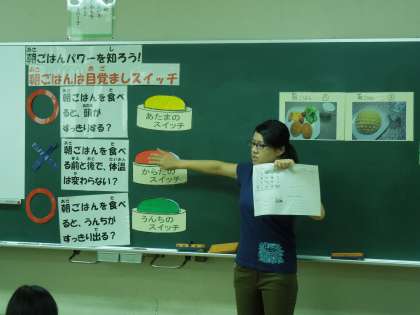 朝ごはんパワーを知ろう!
朝ごはんは目覚ましスイッチ
朝ごはんを食べ
ると、頭が
すっきりする?
あたまの
スイッチ
朝ごはんを食べ
る前と後で、体温
は変わらない?
からだの
スイッチ
朝ごはんを食べ
ると、うんちが
すっきり出る?
うんちの
スイッチ